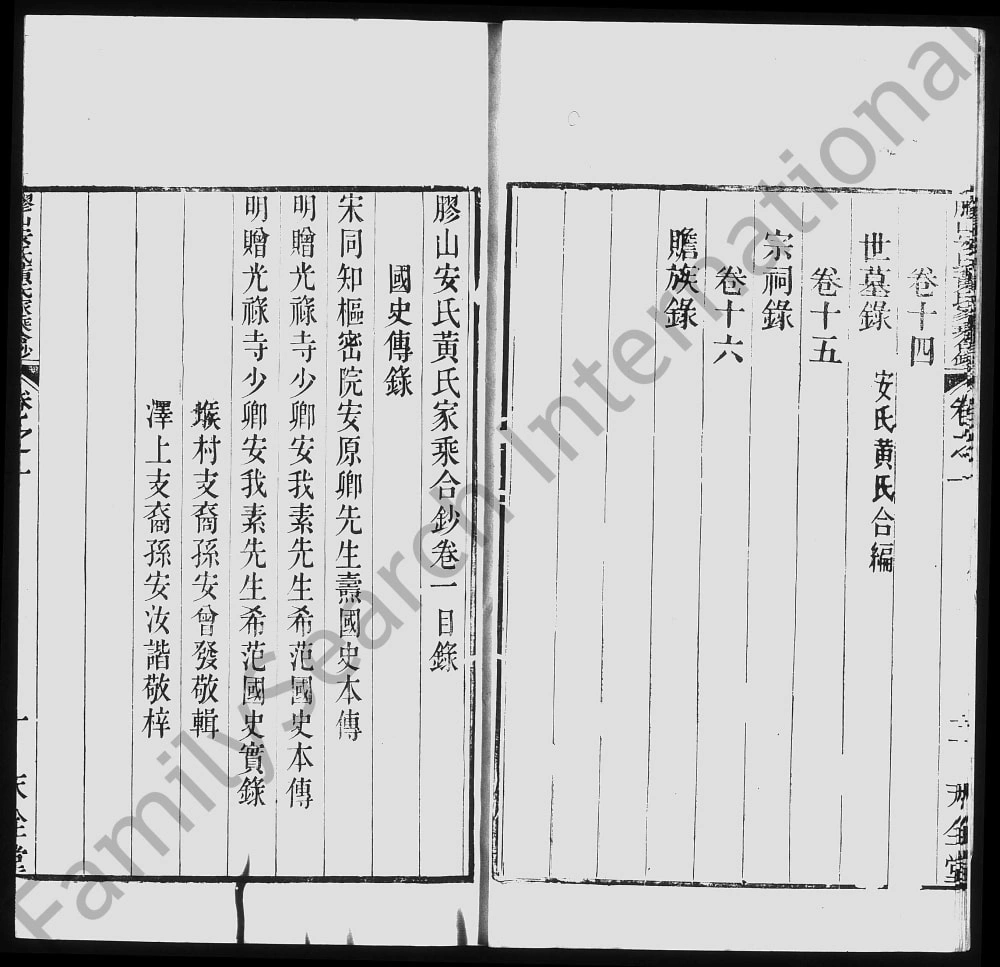 卷十四
世墓錄 安氏黄氏合編
卷十五
宗祠錄
卷十六
贍族錄
天全堂
膠山安氏黃氏家乘合鈔卷一目錄
國史傳錄
宋同知樞密院安原卿先生燾國史本傳
明贈光祿寺少卿安我素先生希范國史本傳
明贈光祿寺少卿安我素先生希范國史實錄
堠村支裔孫安曾發敬輯
澤上支裔孫安汝諧敬梓
一 天全堂
FamilySearch International